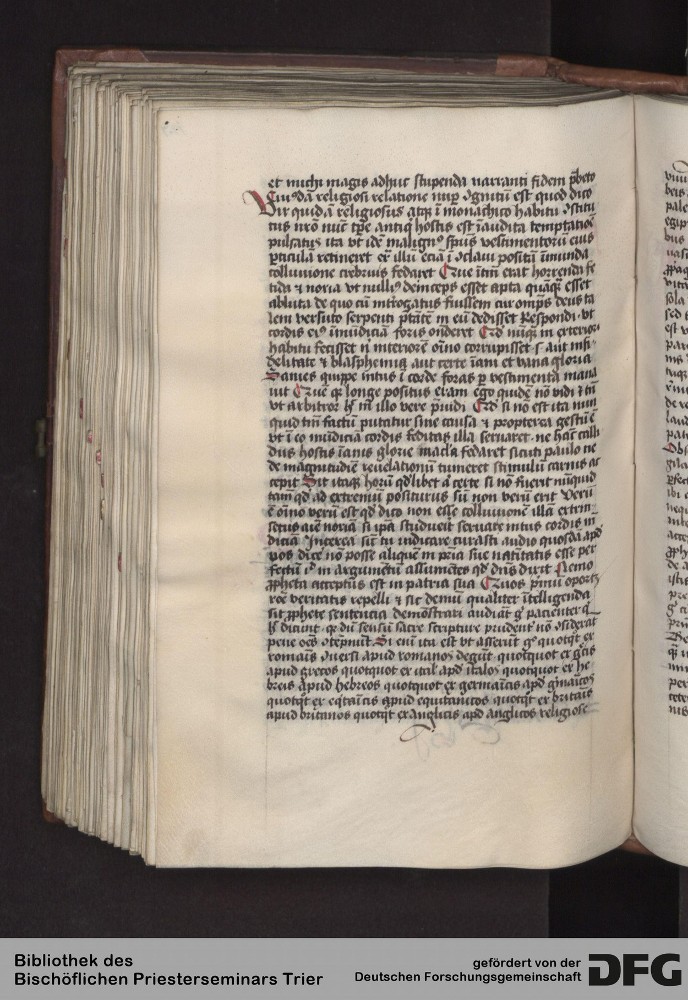 et michi magis adhuc stupenda narranti fidem p̄beto
Cuiꝰdā religiosi relatione nuꝑ ↄgnitū est quod dico
Vir quidā religiosus atqꝫ ī monachico habitu ↄstitu
tus nr̄o nūc tp̄e antiqͥ hostis est īaudita temptatiōe
pulsatus ita vt idē malignꝰ spūs vestimentorū eius
ꝑticula retineret et illū eciā ī ↄclavi positū īmunda
colluuione crebrius fedaret Que itm̄ erat horrenda fe
tida ⁊ noxia vt nulliꝰ deinceps esset apta quāqꝫ esset
abluta de quo cū int̓rogatus fuissem cur omp̄s deus ta
lem versuto serpenti ptātē in eū dedisset Respondi vt
cordis eiꝰ īmūdiciā foris onderet Qd̓ nūqͣ in exteriori
habitu fecisset ni interiorē oīno corrupisset aut infi
delitate ⁊ blasphemia aut certe īam et vana gloria
Sanies quippe intus ī corde foras ꝑ vestimenta mana
uit Que qꝫ longe positus eram ego quidē nō vidi ⁊ tn̄
vt arbitror ħ in illo vere p̄uidi Qd̓ si nō est ita nun
quid tm̄ factū putatur sine causa ⁊ propterea gestū ē
vt ī eo mūdicia cordis feditas illa seruaret ne hāc calli
dus hostis īanis glorie macla fedaret sicuti paulo ne
de magnitudīe reuelationū tumeret stimulū carnis ac
cepit Sit itaqꝫ horū qd̓libet aͭ certe si nō fuerit nūquid
tam qd̓ ad extremū positurus sū non verū erit Verū
ē oīno verū est qd̓ dico non esse colluuionē illā extrin
secus aīe noxiā si ipā studueit seruare intus cordis m̄
diciā Interea siꝉ tu iudicare curasti audio quosdā apd̓
vos dicē nō posse aliquē in pr̄ia sue natiītatis esse per
fectū iꝰ in argumētū assumētes qd̓ dn̄s dixit Nemo
ꝓpheta acceptus est in patria sua Quos p̄mū oportꝫ
rōē veritatis repelli ⁊ sic demū qualiter ītelligenda
sit ꝓphete sentencia demōstrari audiāt gͦ pacienter q̄
ħ dicunt qꝫ dū sensū sacre scripture prudent̓ nō ↄsiderāt
pene oēs ↄtēpnūt Si eni ita est vt asserūt qꝫ quotqͦt ex
romāis ↄuersi apud romanos degūt quotquot ex gͨcis
apud grecos quotquot ex ital̓ apd̓ italos quotquot ex he
breis apud hebreos quotquot ex germaīcis apd̓ gͨmaīcos
quotqͦt ex eqͥtaīcis apud equitanicos quotqͦt ex britāīs
apud britanos quotqͦt ex anglicis apd̓ anglicos religiose
Bibliothek des
Bischöflichen Priesterseminars Trier
gefördert von der
Deutschen Forschungsgemeinschaft
DFG